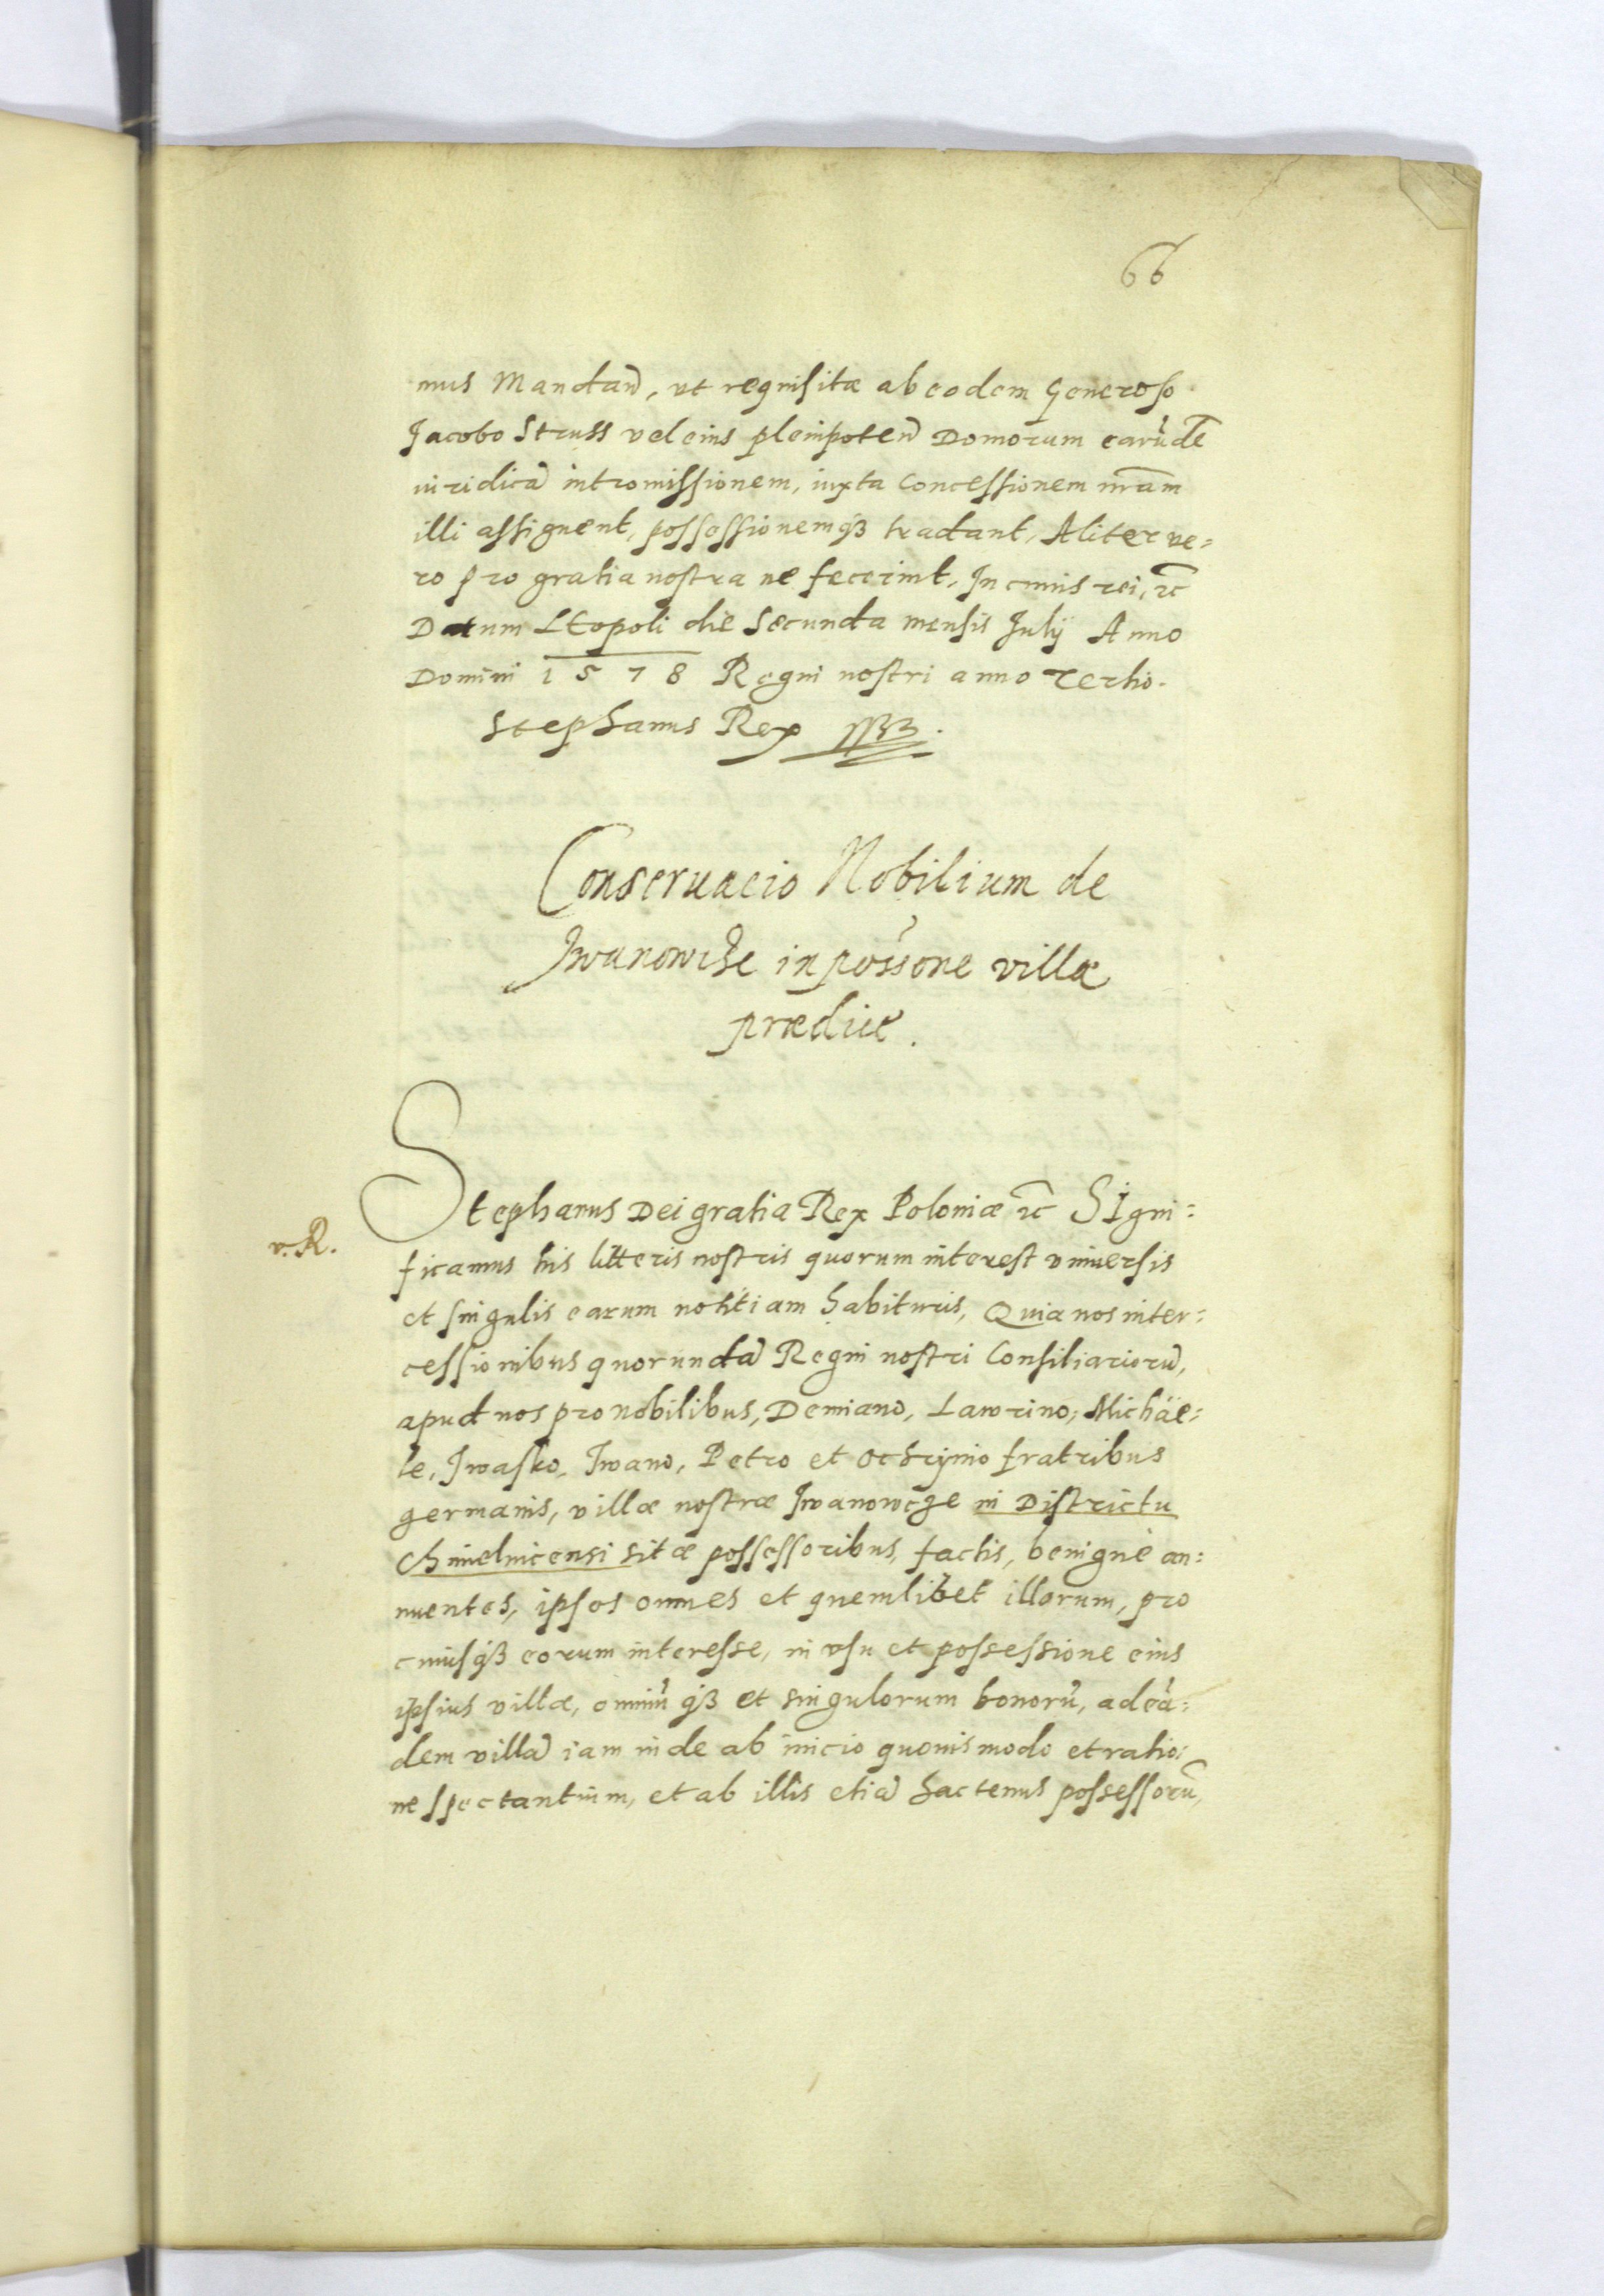 66
mus Mandan̄, vt requisitæ ab eodem Generoso
Jacobo Struss vel eius plenipoten̄ Domorum earūdē
iuridicā intromissionem, iuxta Concessionem nr̄am
illi assignent, possessionemqȝ tradant, Aliter ve=
ro pro gratia nostra ne fecerint, In cuius rei, ꝛc̄
Datum LEopoli die Secunda mensis Julÿ Anno
Domini 1578 Regni nostri anno Tertio.
Stephanus Rex
Conseruacio Nobilium de
Iwanowcze in possōne villæ
prædiće.
Stephanus Dei gratia Rex Poloniæ ꝛc̄ SIgni=
v. R.
ficamus his litteris nostris quorum interest vniuersis
et singulis earum notitiam habituris, Quia nos inter=
cessionibus quorundā Regni nostri Consiliariorū,
apud nos pro nobilibus, Demiano, Lawrino, Michäe=
le, Iwasko, Iwano, Petro et Ochrijmo fratribus
germanis, villæ nostræ Iwanowcze in Districtu
Chmielnicensi sitæ possessoribus, factis, benignè an=
nuentes, ipsos omnes et quemlibet illorum, pro
cuiusqȝ eorum interesse, in vsu et possessione eius
ipsius villæ, omniū qȝ et singulorum bonorū, ad eā=
dem villā iam inde ab inicio quouis modo et ratio=
ne spectantium, et ab illis etiā hactenus possessorū,